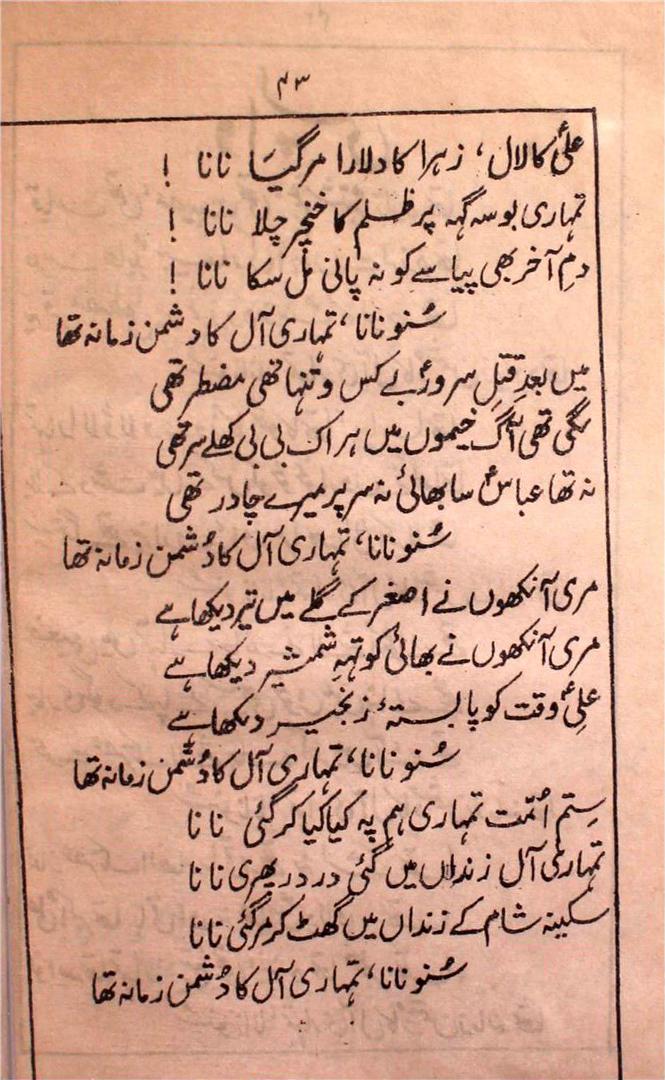 ۴۳
علیؑ کا لال، زہرا کا دلارا مر گیا نانا !
تمہاری بوسہ گہہ پر ظلم کا خنجر چلا نانا !
دمِ آخر بھی پیاسے کو نہ پانی مل سکا نانا !
سُنو نانا، تمہاری آل کا دشمن زمانہ تھا
میں بعدِ قتلِ سرورؑ بے کس و تنہا تھی مضطر تھی
لگی تھی آگ خیموں میں ہر اک بی بی کھلے سر تھی
نہ تھا عباسؑ سا بھائی نہ سر پر میرے چادر تھی
سُنو نانا، تمہاری آل کا دُشمن زمانہ تھا
مری آنکھوں نے اصغر کے گلے میں تیر دیکھا ہے
مری آنکھوں نے بھائی کو تہہِ شمشیر دیکھا ہے
علیِؑ وقت کو پا بستۂ زنجیر دیکھا ہے
سُنو نانا، تمہاری آل کا دُشمن زمانہ تھا
ستم اُمّت تمہاری ہم پہ کیا کیا کر گئی نانا
تمہاری آل زنداں میں گئی در در پھری نانا
سکینہ شام کے زنداں میں گھٹ کر مر گئی نانا
سُنو نانا، تمہاری آل کا دُشمن زمانہ تھا